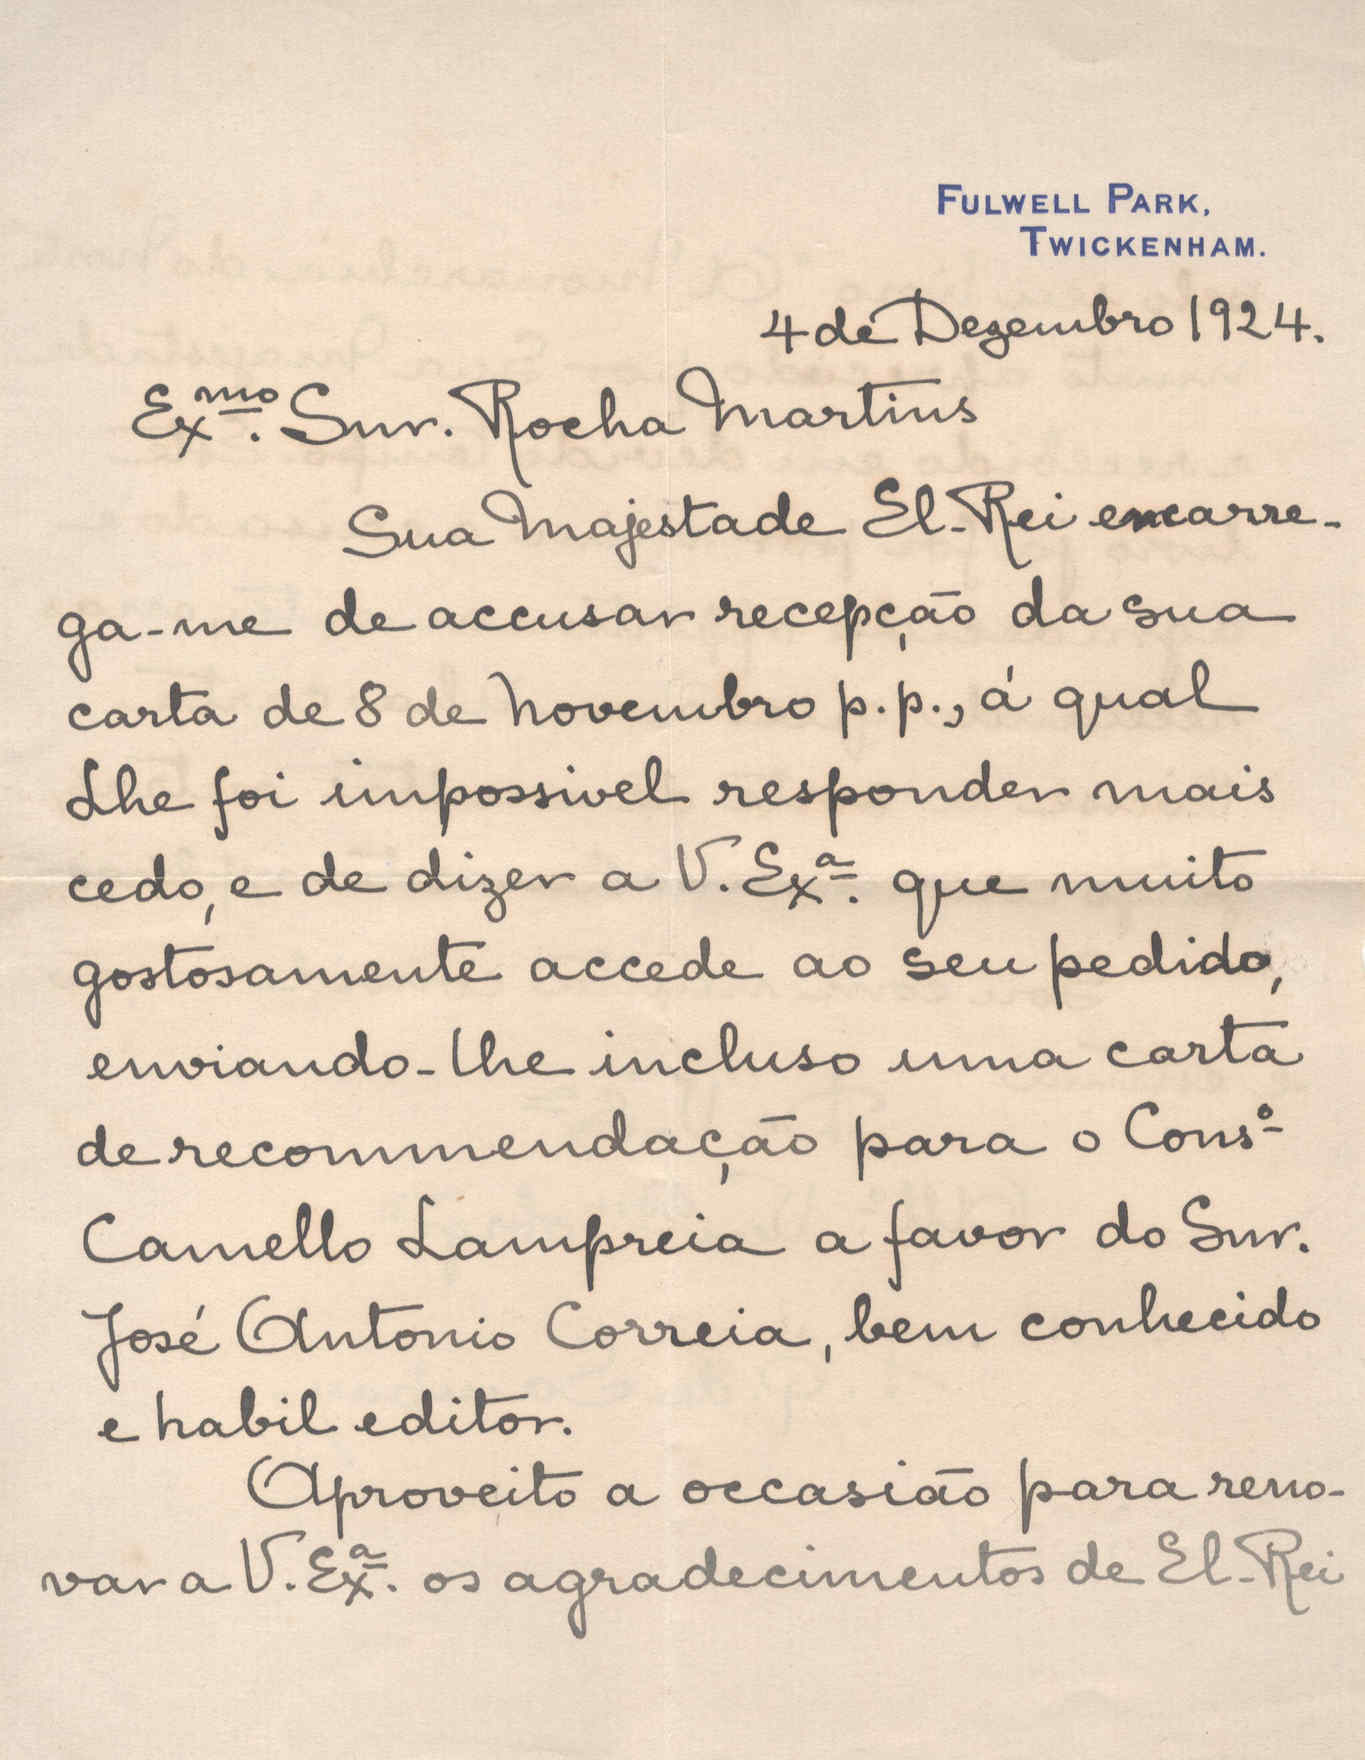 FULWELL PARK,
TWICKENHAM.
4 de Dezembro 1924.
Exmo. Snr. Rocha Martins
Sua Majestade El-Rei encarre-
ga-me de accusar recepção da sua
carta de 8 de Novembro p.p., á qual
Lhe foi impossivel responder mais
cedo, e de dizer a V. Exa. que muito
gostosamente accede ao seu pedido,
enviando-lhe incluso uma carta
de recommendação para o Conso
Camello Lampreia a favor do Snr.
José Antonio Correia, bem conhecido
e habil editor.
Aproveito a occasião para reno-
var a V. Exa. os agradecimentos de El-Rei